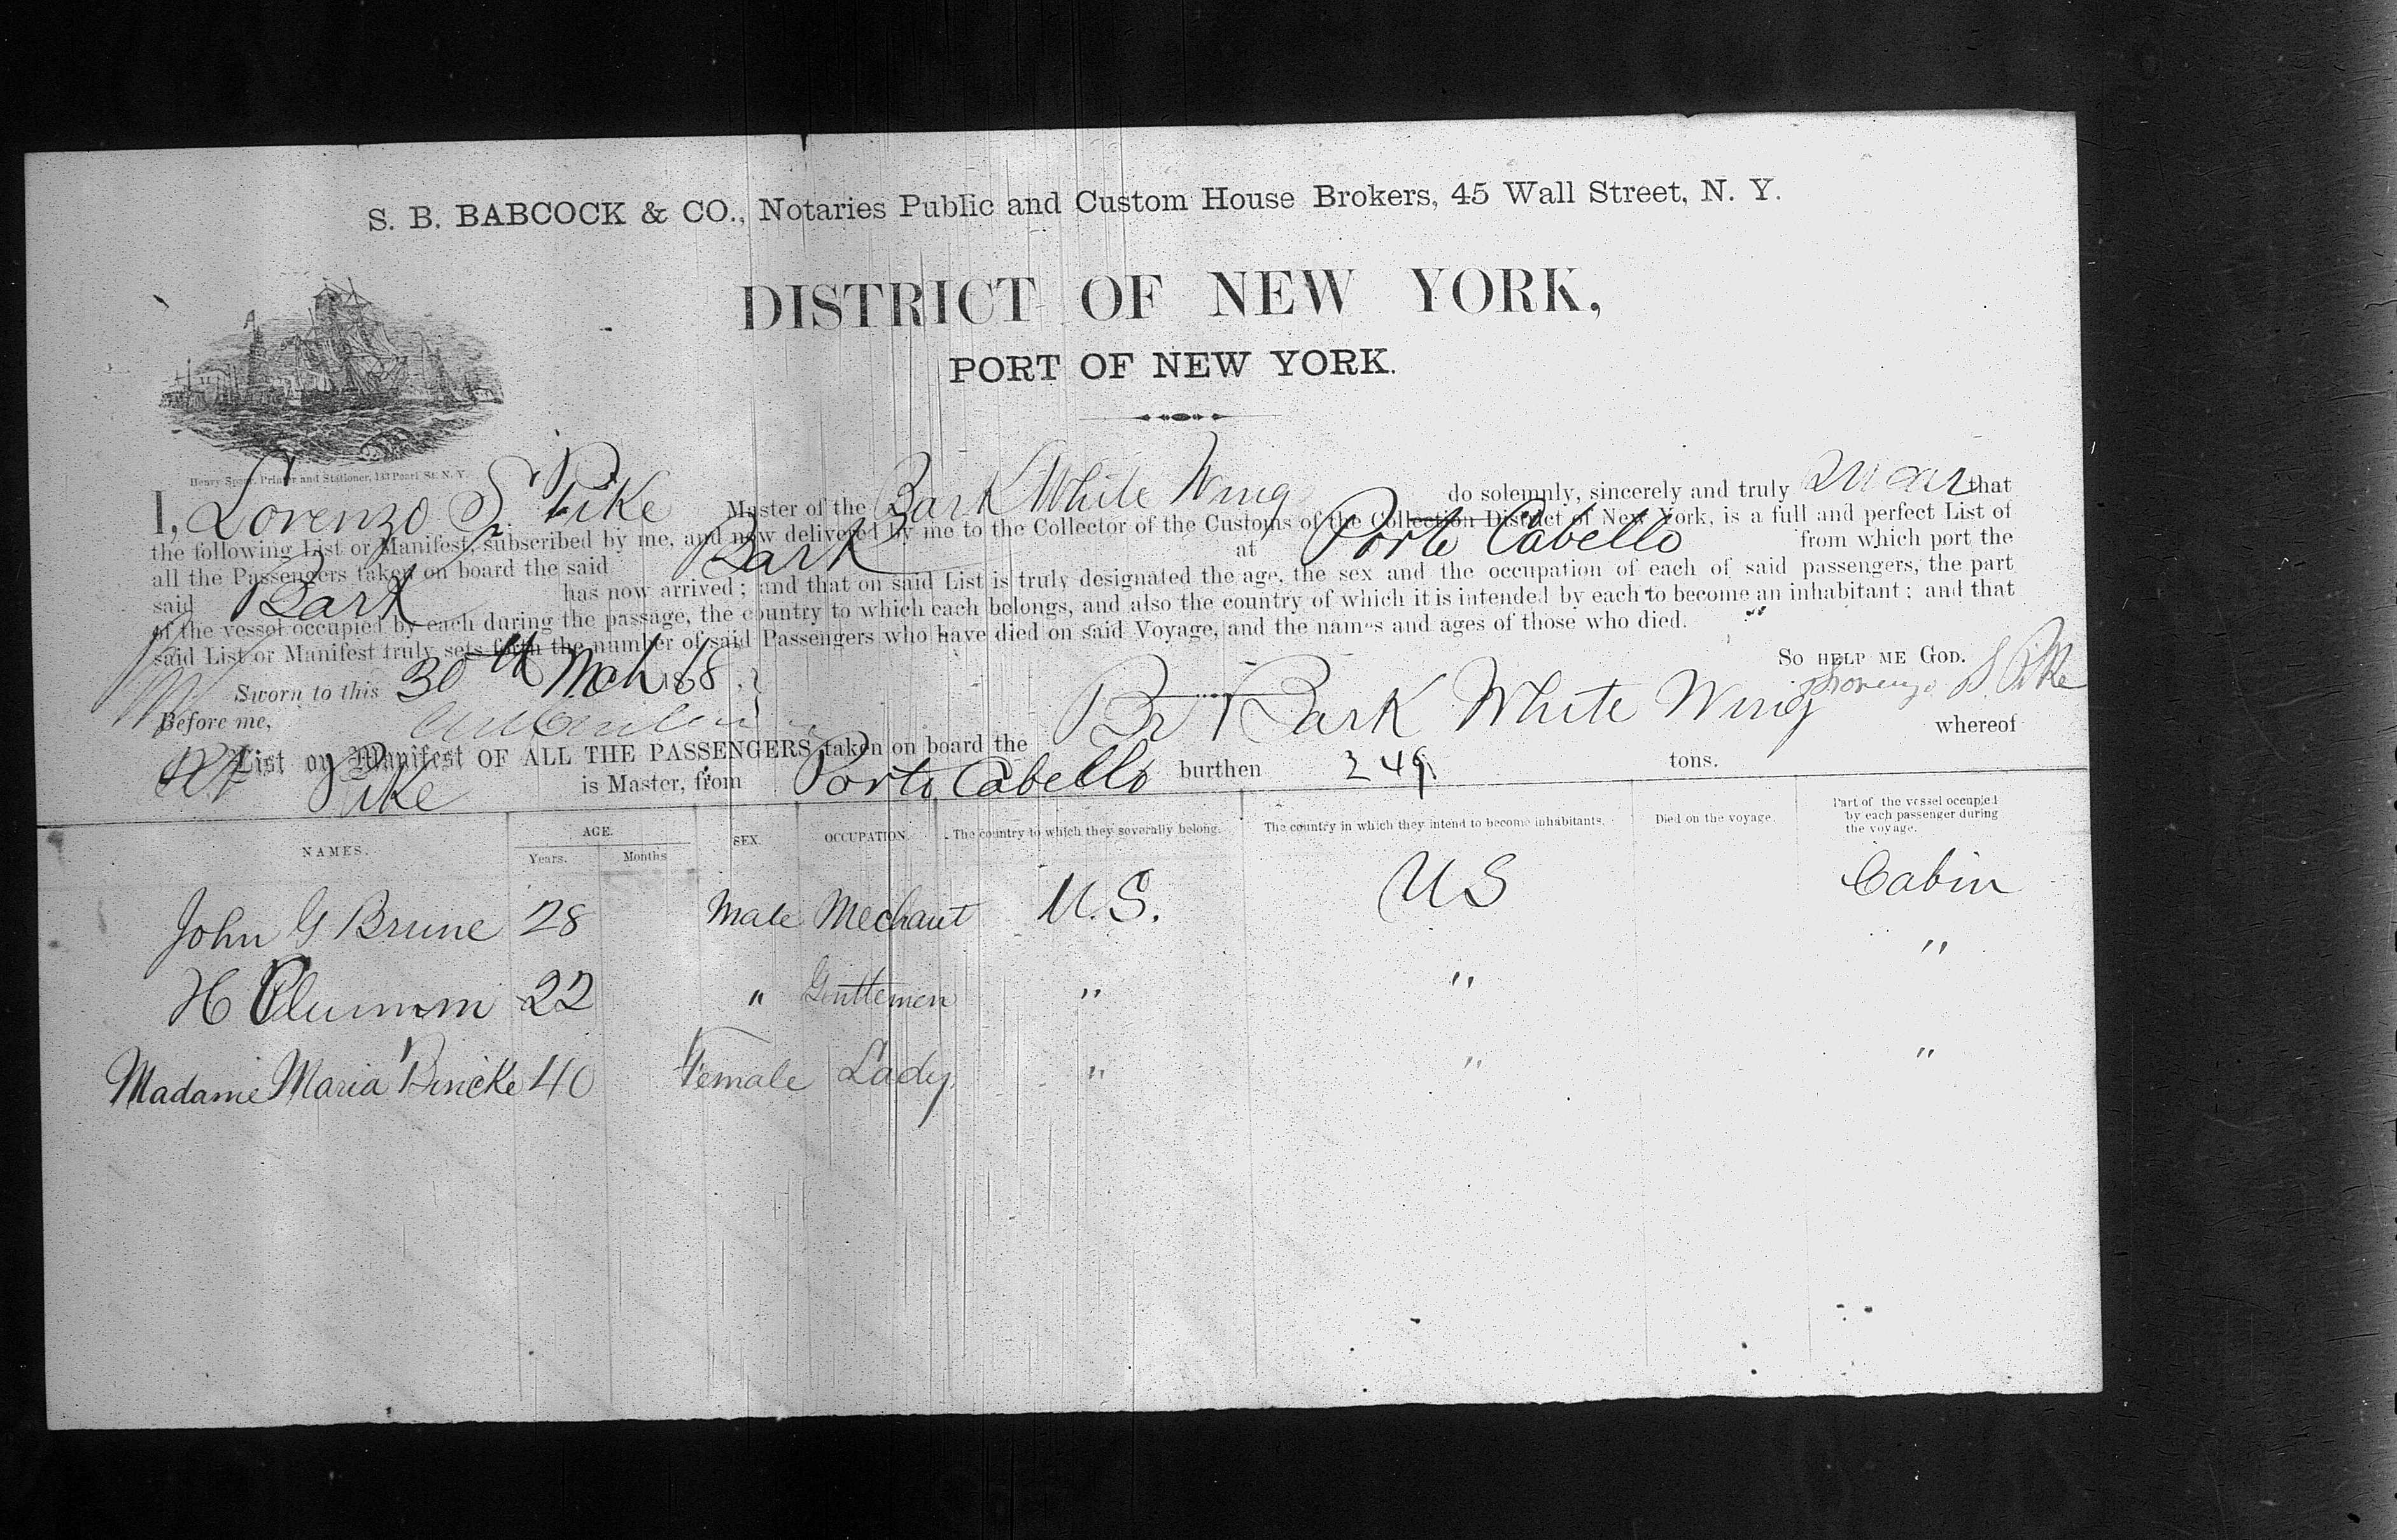 S. B. BABCOCK & CO., Notaries Public and Custom House Brokers, 45 Wall Street, N. Y.
DISTRICT OF NEW YORK,
PORT OF NEW YORK.
Henry Spear, Printer and Stationer, 133 Pearl St. N. Y.
I, Lorenzo S Pike Master of the Bark White Wing do solemnly, sincerely and truly swear that
the following List or Manifest, subscribed by me, and now delivered by me to the Collector of the Customs of the Collection District of New York, is a full and perfect List of
all the Passengers taken on board the said Bark at Porto Cabello from which port the
said Bark has now arrived; and that on said List is truly designated the age, the sex and the occupation of each of said passengers, the part
of the vessel occupied by each during the passage, the country to which each belongs, and also the country of which it is intended by each to become an inhabitant; and that
said List or Manifest truly sets forth the number of said Passengers who have died on said Voyage, and the names and ages of those who died.
So HELP ME GOD.
Sworn to this 30th Mch 1868. Lorenzo S Pike
Before me,
List or Manifest OF ALL THE PASSENGERS taken on board the Br Bark White Wing whereof
Pike is Master, from Porto Cabello burthen 249 tons.
NAMES. AGE. Years. Months SEX. OCCUPATION. The country to which they severally belong. The country in which they intend to become inhabitants. Died on the voyage. Part of the vessel occupied by each passenger during the voyage.
John G Brune 28 Male Mechant U.S. US Cabin
H Plumm 22 " Gentlemen " " "
Madame Maria Bincke 40 Female Lady " " "